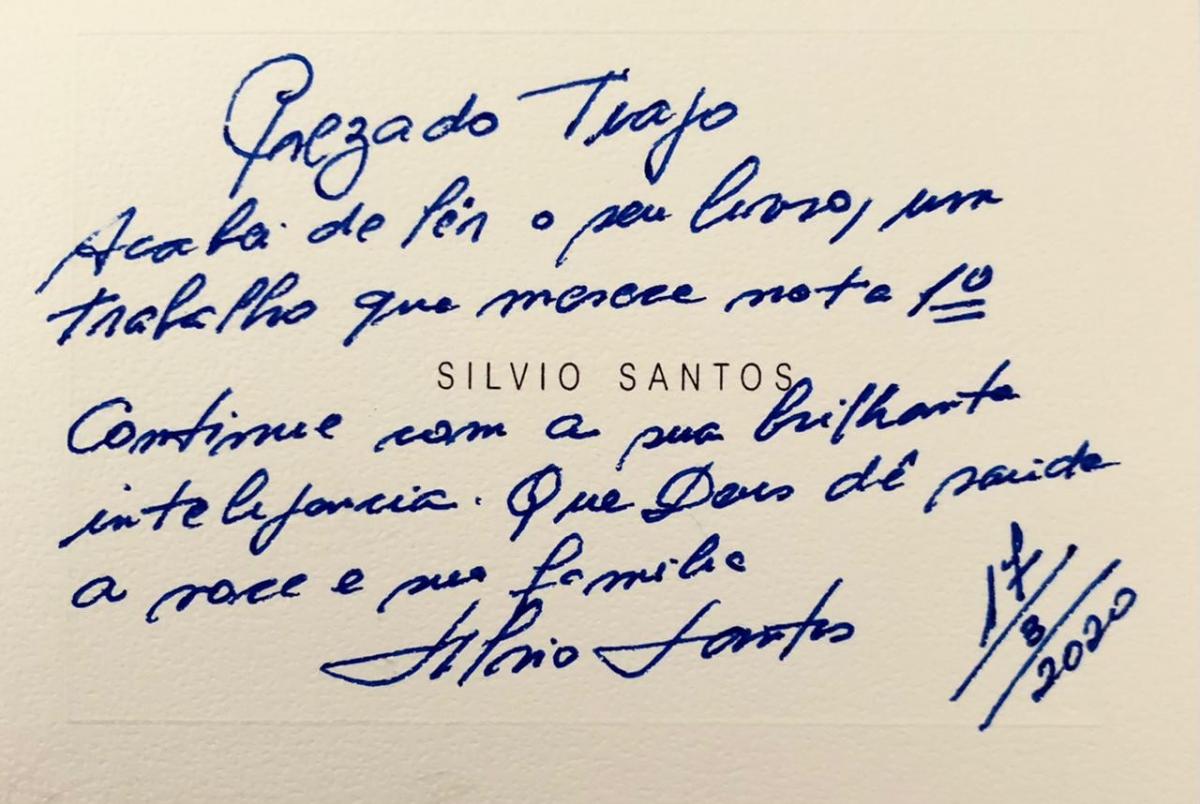 Prezado Trajo
Acabei de lêr o seu livro, um
trabalho que merece nota 10
SILVIO SANTOS
Continue com a sua brilhante
inteligencia. Que Deus dê saúde
a voce e sua familia
Silvio Santos
17/3/2020